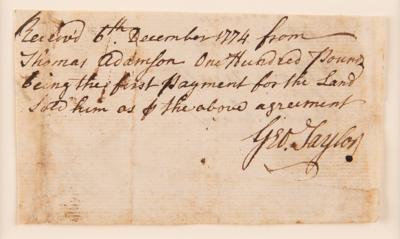 Receivd 6th December 1774 from
Thomas Adamson One Hundred Pounds
being the first Payment for the Land
Sold him as ⅌ the above agreement
Geo. Taylor